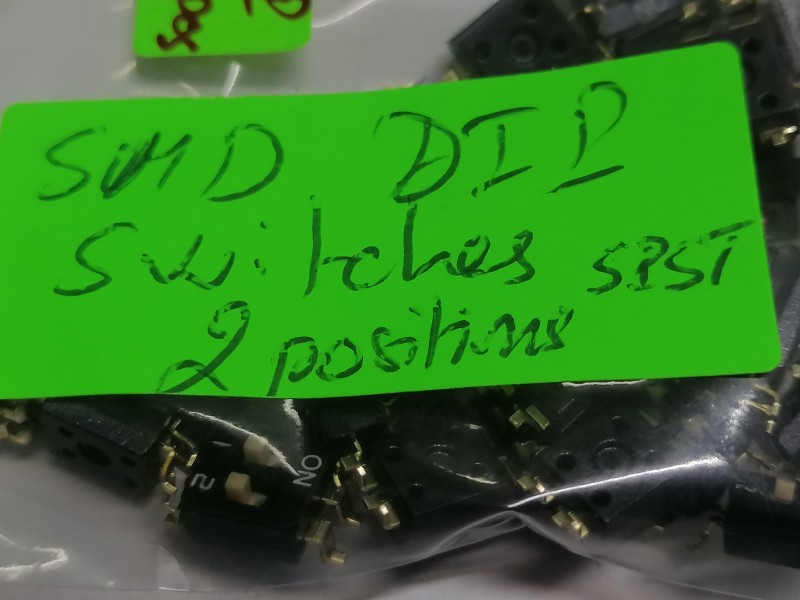 SMD DIP
switches SPST
2 positions
1
2
ON